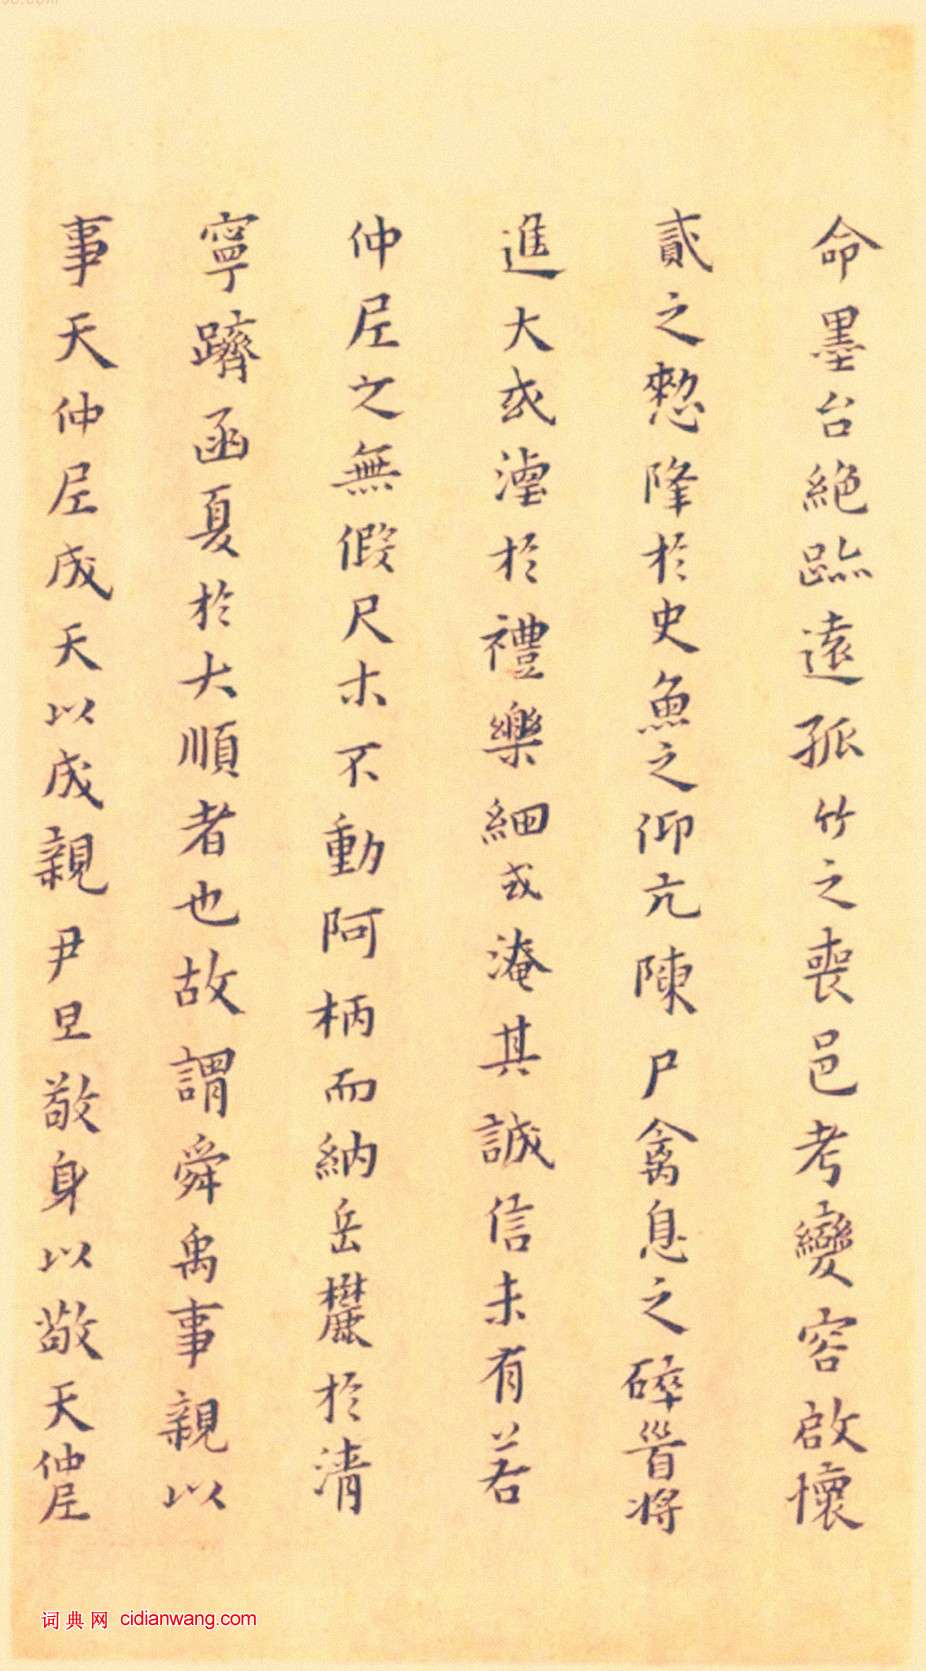 命墨台絕跡遠孤竹之喪邑考變容啟懷
貳之愸隆於史魚之仰亢陳尸禽息之碎首將
進大或湮於禮樂細或淹其誠信未有若
仲尼之無假尺木不動阿柄而納岳麓於清
寧躋函夏於大順者也故謂舜禹事親以
事天仲尼成天以成親尹旦敬身以敬天仲尼
词典网 cidianwang.com